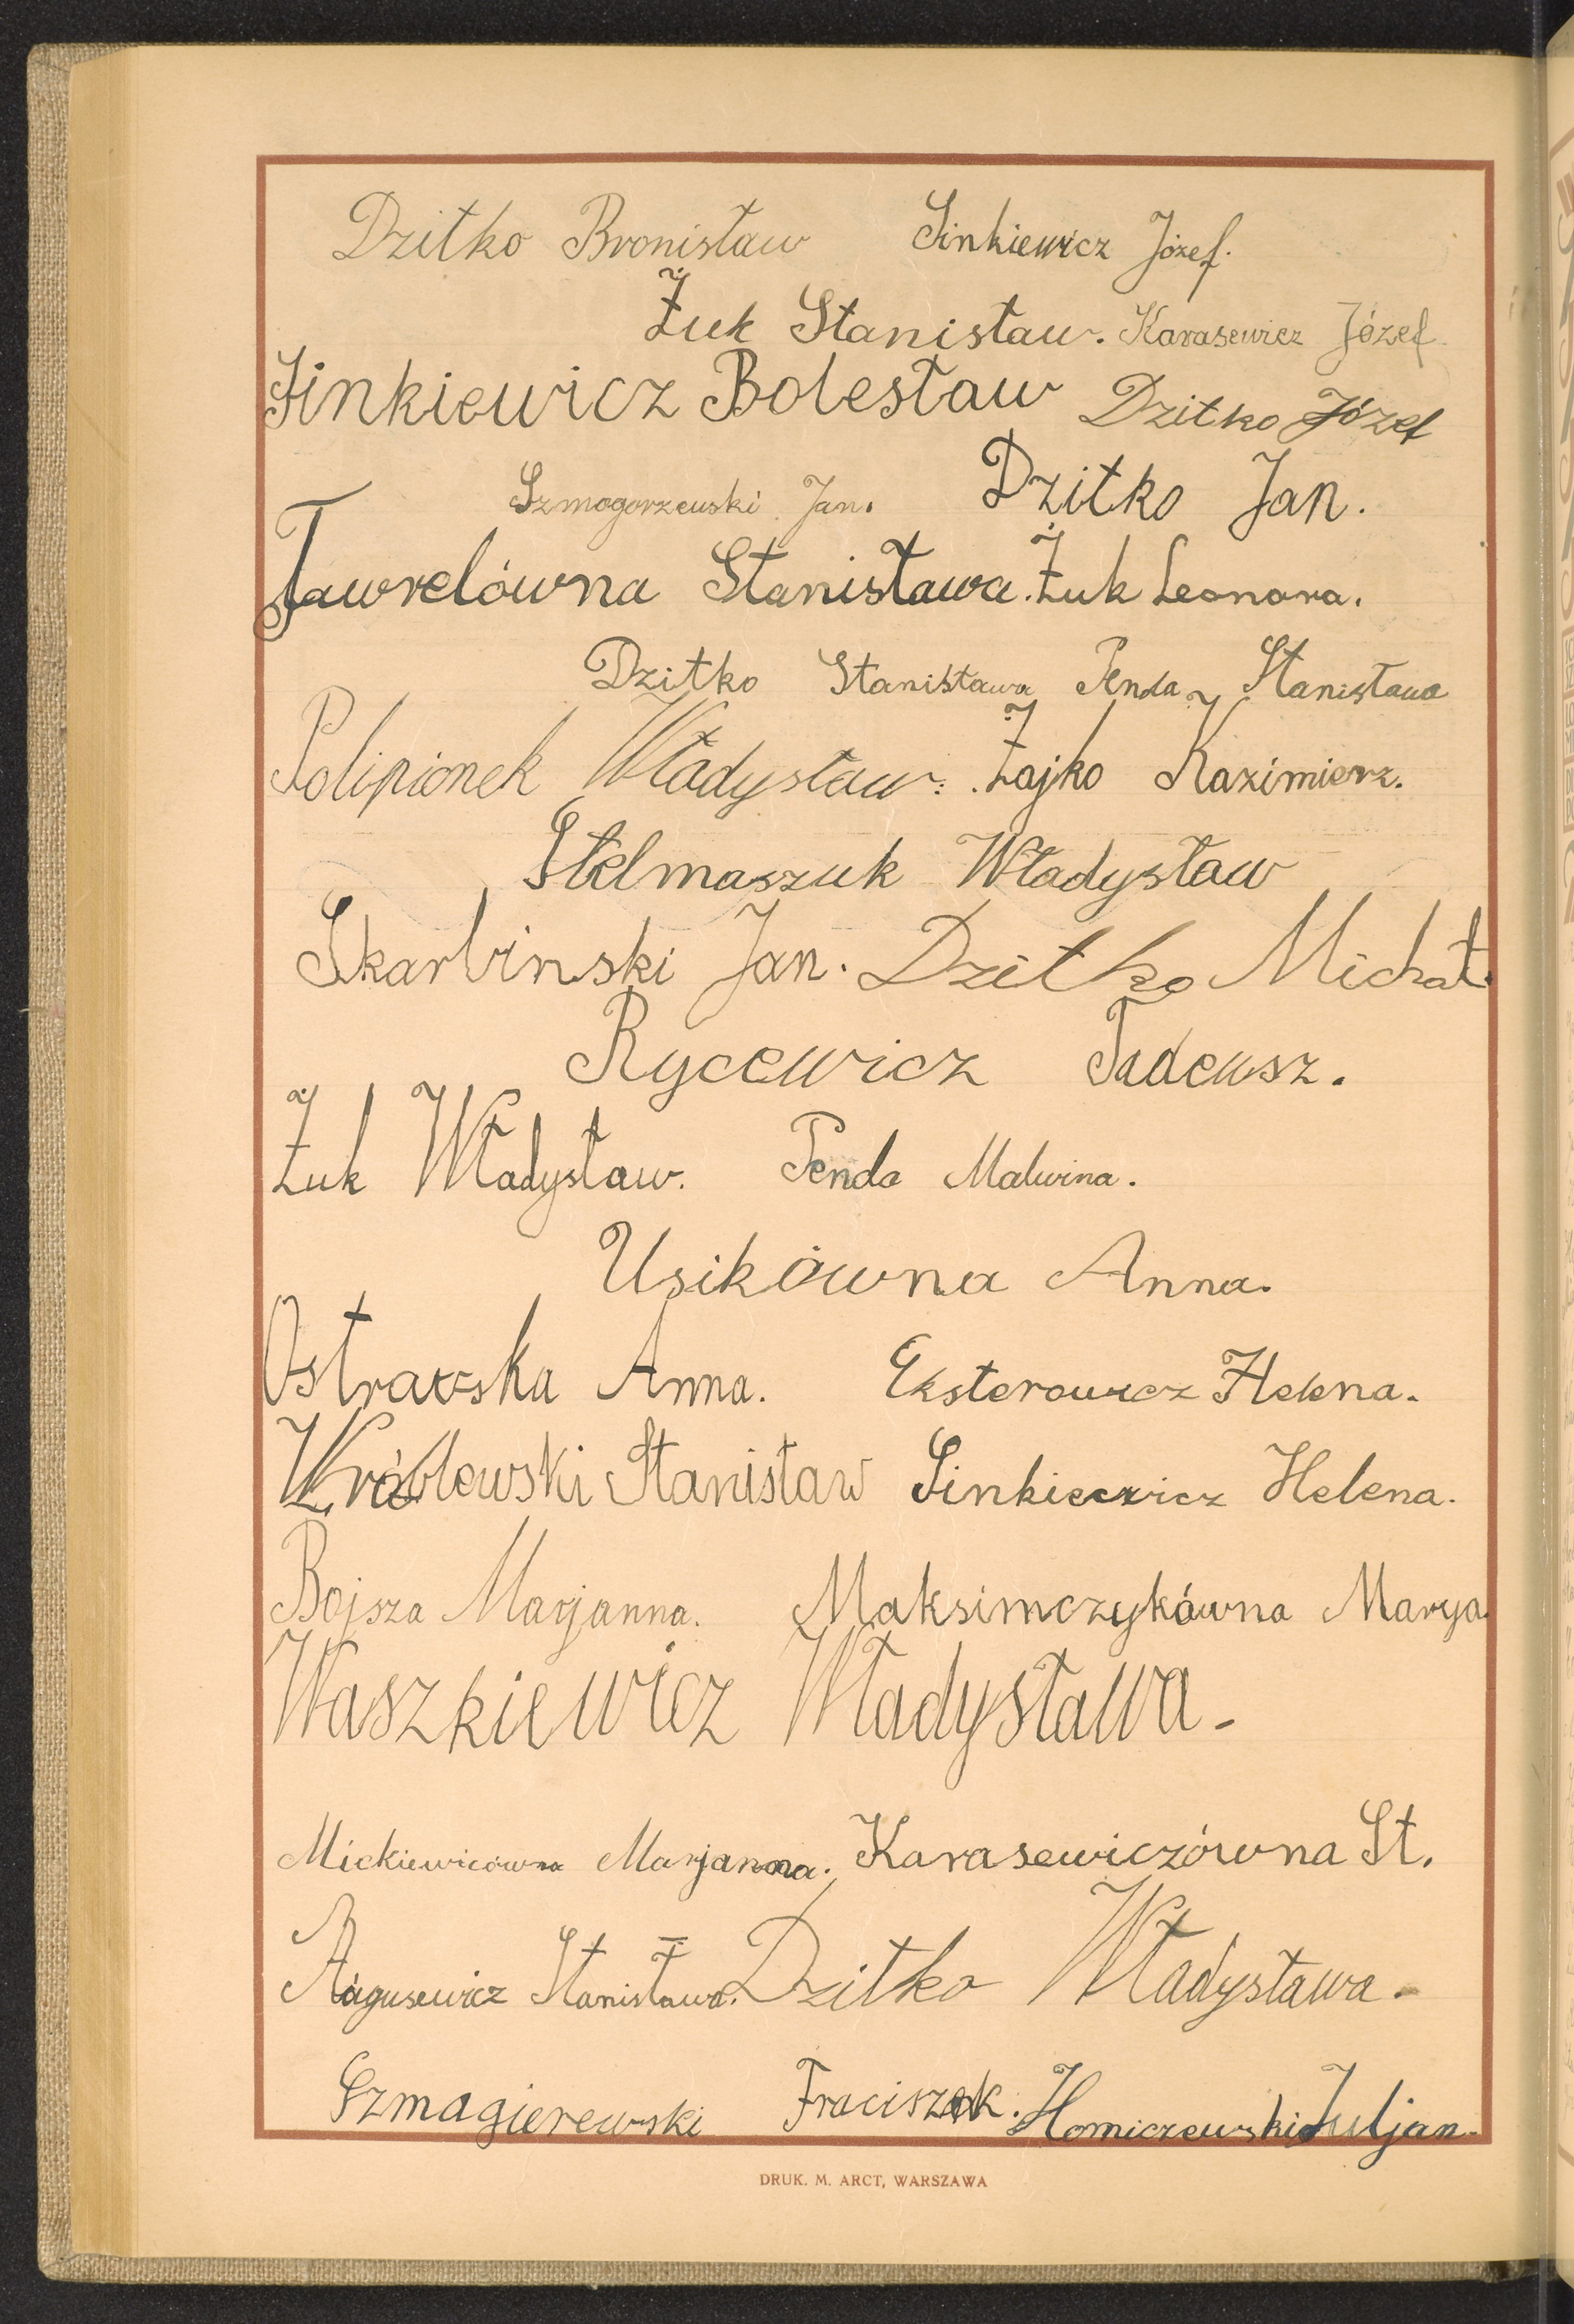 Dzitko Bronisław Sinkiewicz Józef.
Żuk Stanisław. Karasewicz Józef.
Sinkiewicz Bolesław Dzitko Józef
Szmogorzewski Jan. Dzitko Jan.
Tawrelówna Stanisława. Żuk Leonora.
Dzitko Stanisława Penda Stanisława
Polipionek Władysław. Zajko Kazimierz.
Stelmaszuk Władysław
Skarbinski Jan. Dzitko Michał.
Rycewicz Tadeusz.
Żuk Władysław. Penda Malwina.
Usikówna Anna.
Ostrowska Anna. Eksterowicz Helena.
Wróblewski Stanisław Sinkiewicz Helena.
Bojsza Marjanna. Maksimczykówna Marya.
Waszkiewicz Władysława.
Mickiewicówna Marjanna. Karasewiczówna St.
Stanisława. Dzitko Władysława.
Szmagierewski Fraciszek. Homiczewski Juljan.
DRUK. M. ARCT, WARSZAWA